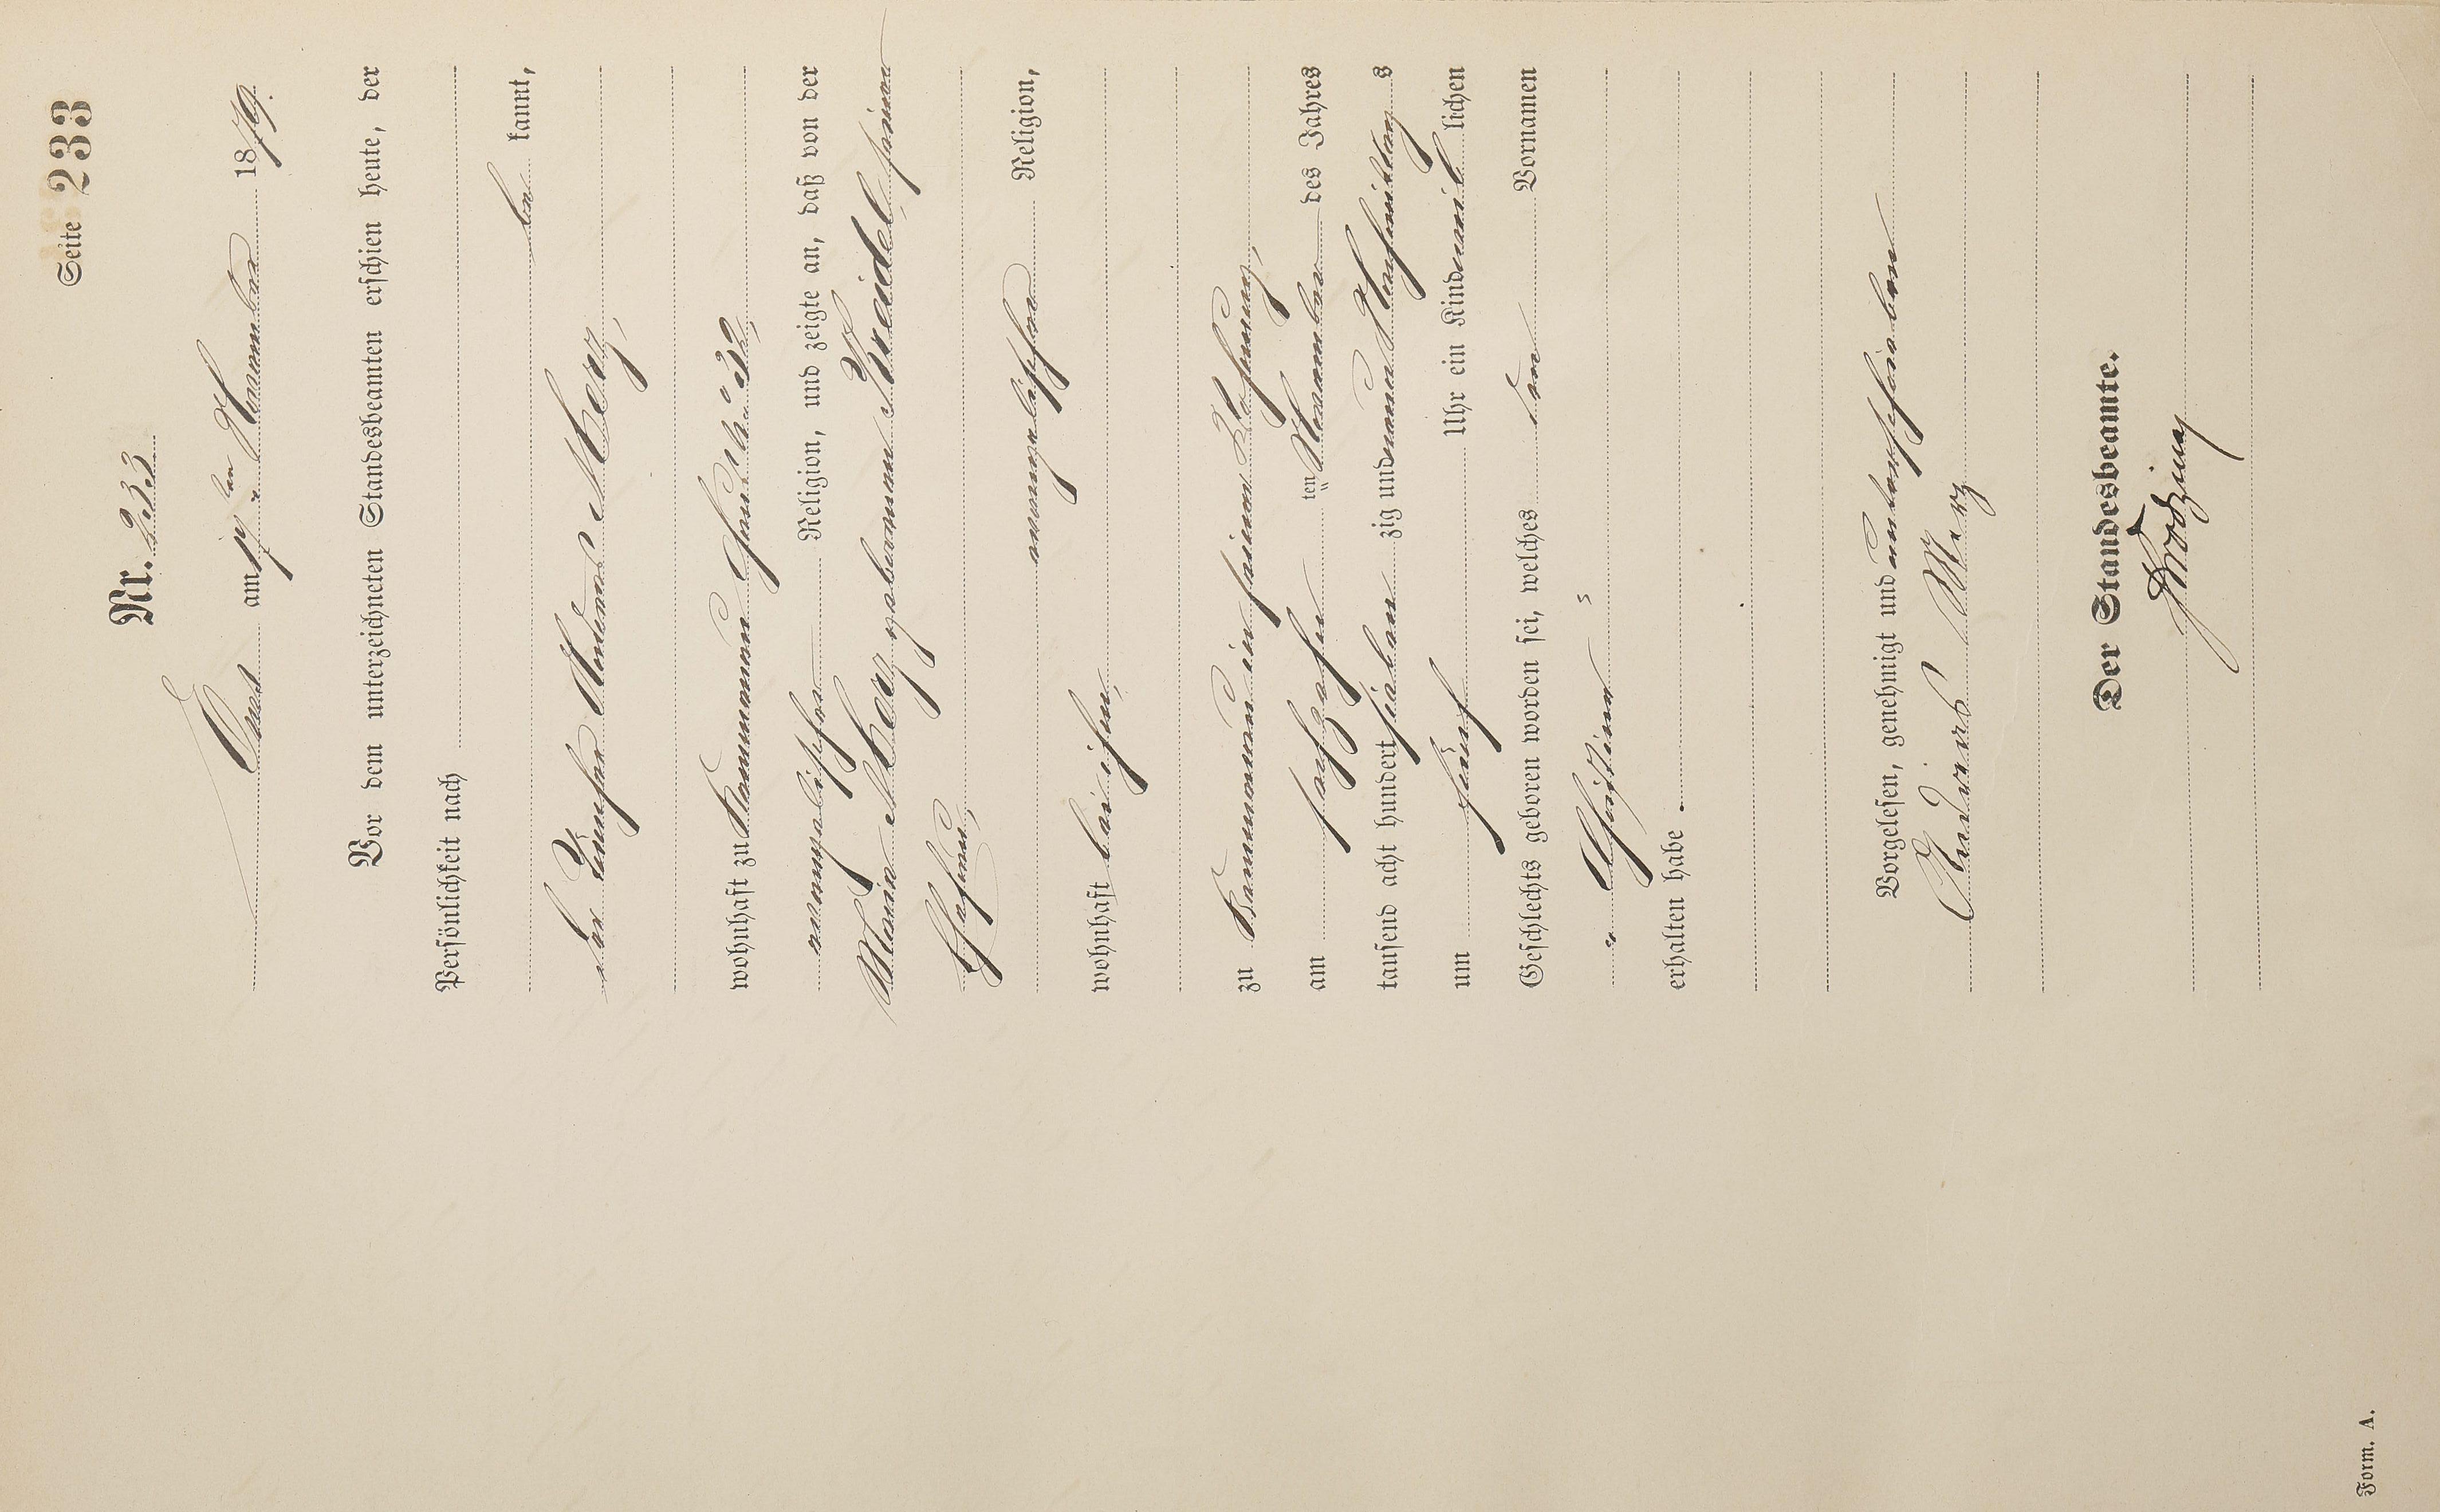 Seite 233
Nr. 233
Ems am 17ten November 1879.
Vor dem unterzeichneten Standesbeamten erschien heute, der
Persönlichkeit nach
be kannt,
der Tüncher Andreas Merz,
wohnhaft zu Kemmenau Haus No 32,
evangelischer Religion, und zeigte an, daß von der
Maria Merz geborenen Kreidel, seiner
Ehefrau,
evangelischer Religion,
wohnhaft bei ihm,
zu Kemmenau in seiner Wohnung,
am sechzehn ten November des Jahres
tausend acht hundert siebenzig und neun Nachmittags
um fünf Uhr ein Kind weiblichen
Geschlechts geboren worden sei, welches den Vornamen
„Christine“
erhalten habe.
Vorgelesen, genehmigt und unterschrieben
Andreas Merz
Der Standesbeamte.
Form. A.